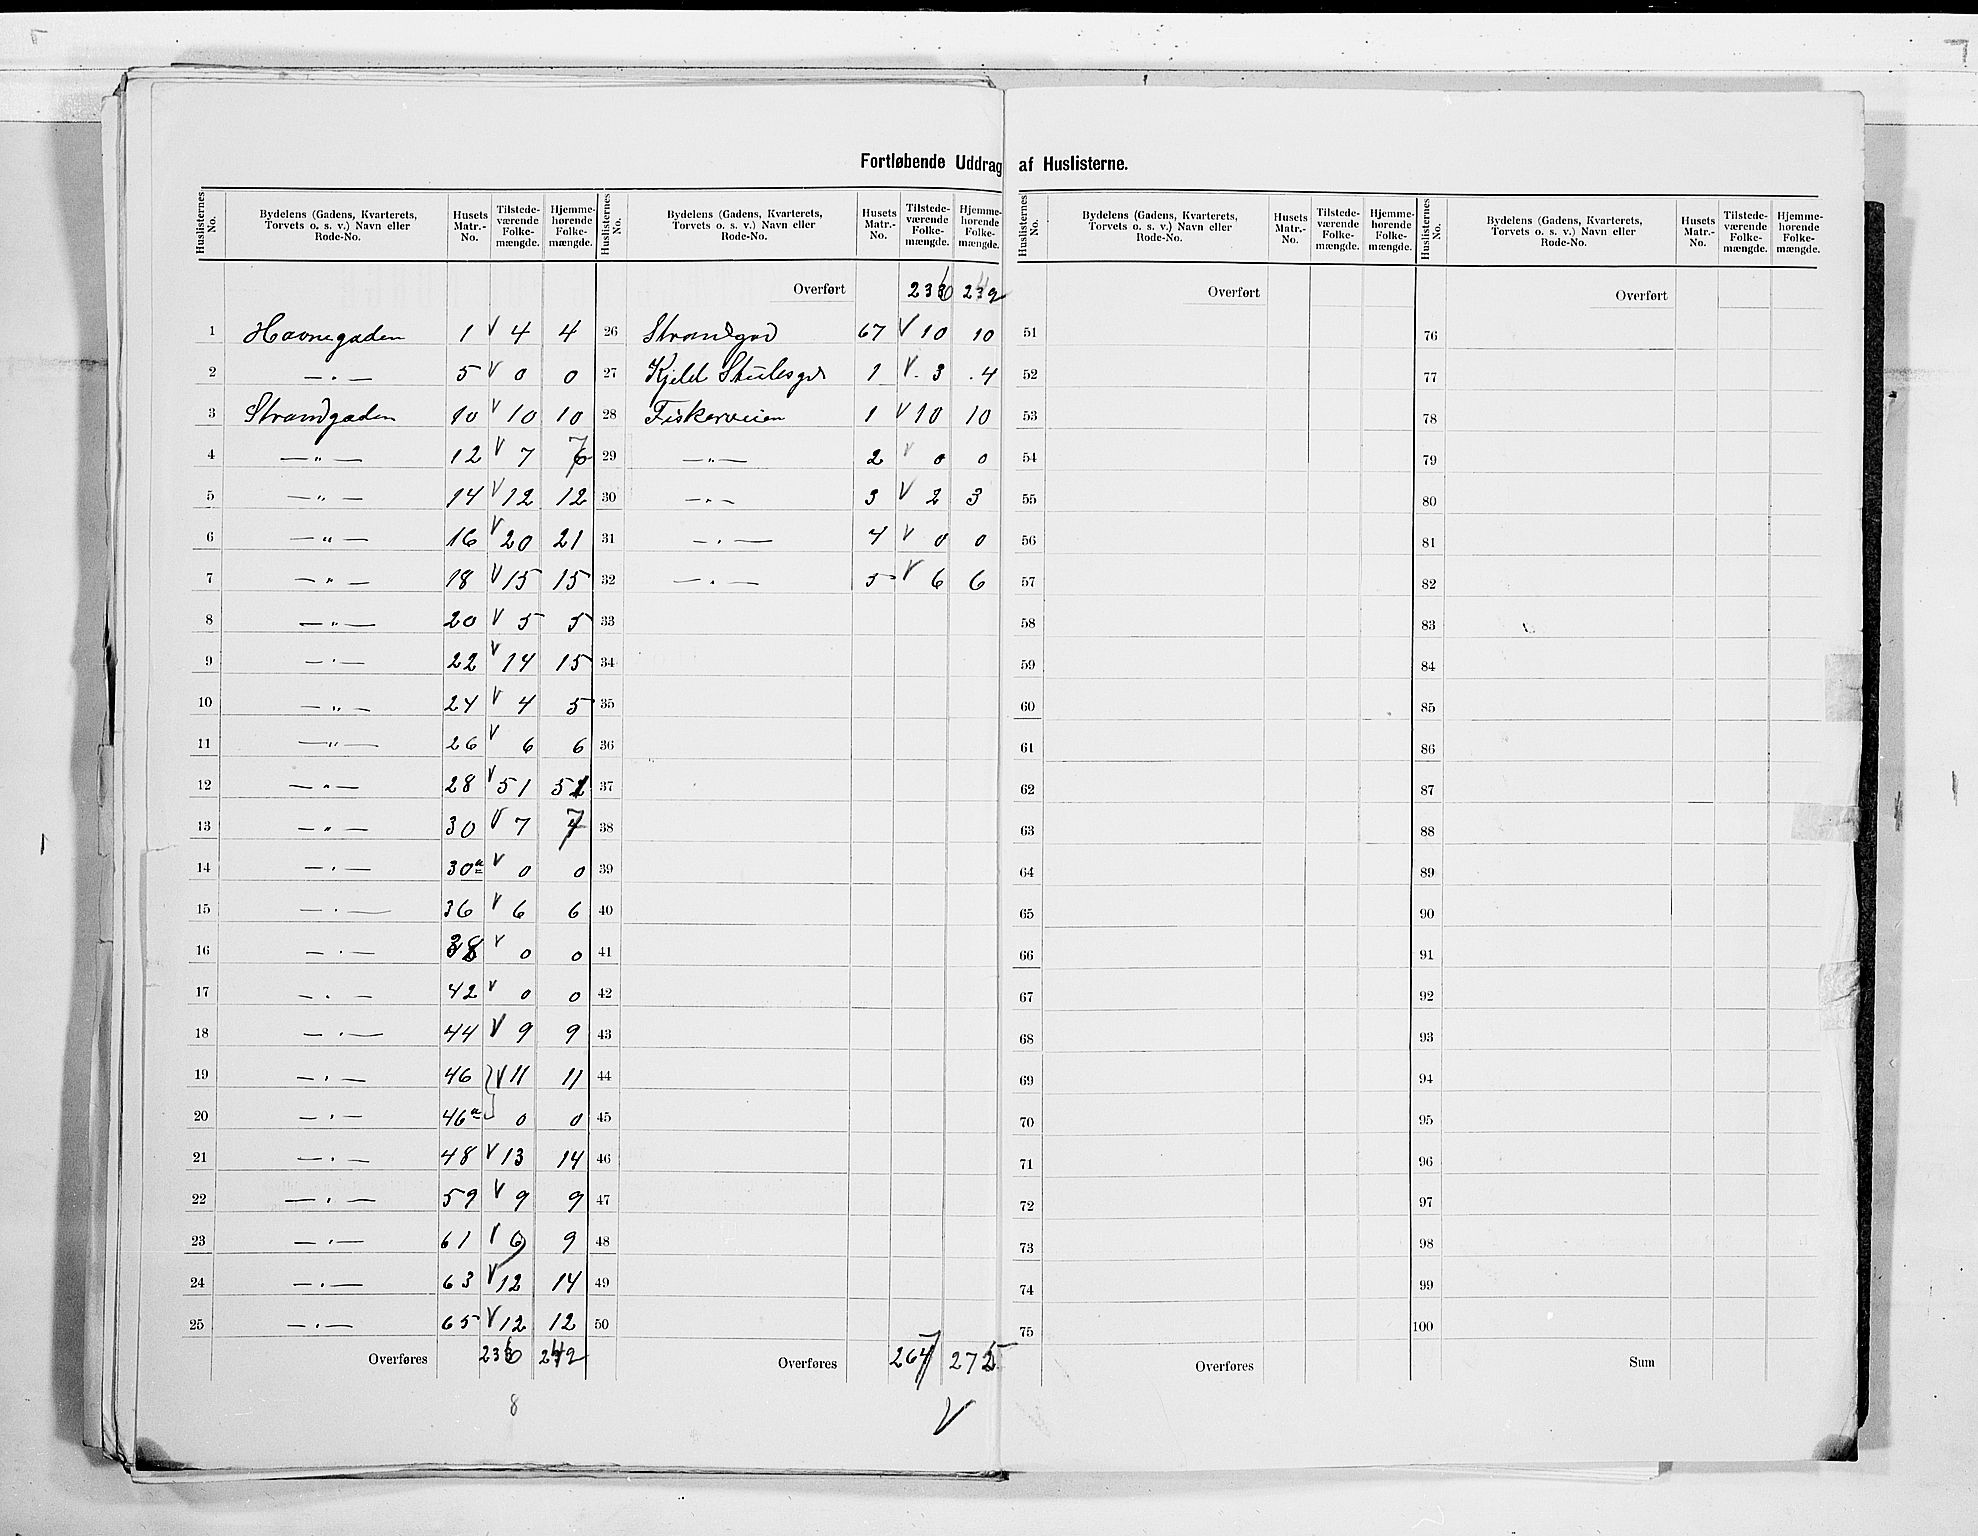 Fortløbende Uddrag af Huslisterne.
Huslisternes No. Bydelens (Gadens, Kvarterets, Torvets o. s. v.) Navn eller Rode-No. Husets Matr.-No. Tilstedeværende Folkemængde. Hjemmehørende Folkemængde.
1 Havnegaden 1 V 4 4
2 — " — 5 V 0 0
3 Strandgaden 10 V 10 10
4 — " — 12 V 7 7
5 — " — 14 V 12 12
6 — " — 16 V 20 21
7 — " — 18 V 15 15
8 — " — 20 V 5 5
9 — " — 22 V 14 15
10 — " — 24 V 4 5
11 — " — 26 V 6 6
12 — " — 28 V 51 51
13 — " — 30 V 7 7
14 — " — 30a V 0 0
15 — " — 36 V 6 6
16 — " — 38 V 0 0
17 — " — 42 V 0 0
18 — " — 44 V 9 9
19 — " — 46 V 11 11
20 — " — 46a 0 0
21 — " — 48 V 13 14
22 — " — 59 V 9 9
23 — " — 61 V 9
24 — " — 63 V 12 14
25 — " — 65 V 12 12
Overføres 236 242
8
Huslisternes No. Bydelens (Gadens, Kvarterets, Torvets o. s. v.) Navn eller Rode-No. Husets Matr.-No. Tilstedeværende Folkemængde. Hjemmehørende Folkemængde.
Overført 236 242
26 Strandgad 67 V 10 10
27 Kjeld Stubsgd 1 V 3 4
28 Fiskerveien 1 V 10 10
29 — " — 2 V 0 0
30 — " — 3 V 2 3
31 — " — 4 V 0 0
32 — " — 5 V 6 6
33
34
35
36
37
38
39
40
41
42
43
44
45
46
47
48
49
50
Overføres 267 275
V
Huslisternes No. Bydelens (Gadens, Kvarterets, Torvets o. s. v.) Navn eller Rode-No. Husets Matr.-No. Tilstedeværende Folkemængde. Hjemmehørende Folkemængde.
Overført
51
52
53
54
55
56
57
58
59
60
61
62
63
64
65
66
67
68
69
70
71
72
73
74
75
Overføres
Huslisternes No. Bydelens (Gadens, Kvarterets, Torvets o. s. v.) Navn eller Rode-No. Husets Matr.-No. Tilstedeværende Folkemængde. Hjemmehørende Folkemængde.
Overført
76
77
78
79
80
81
82
83
84
85
86
87
88
89
90
91
92
93
94
95
96
97
98
99
100
Sum